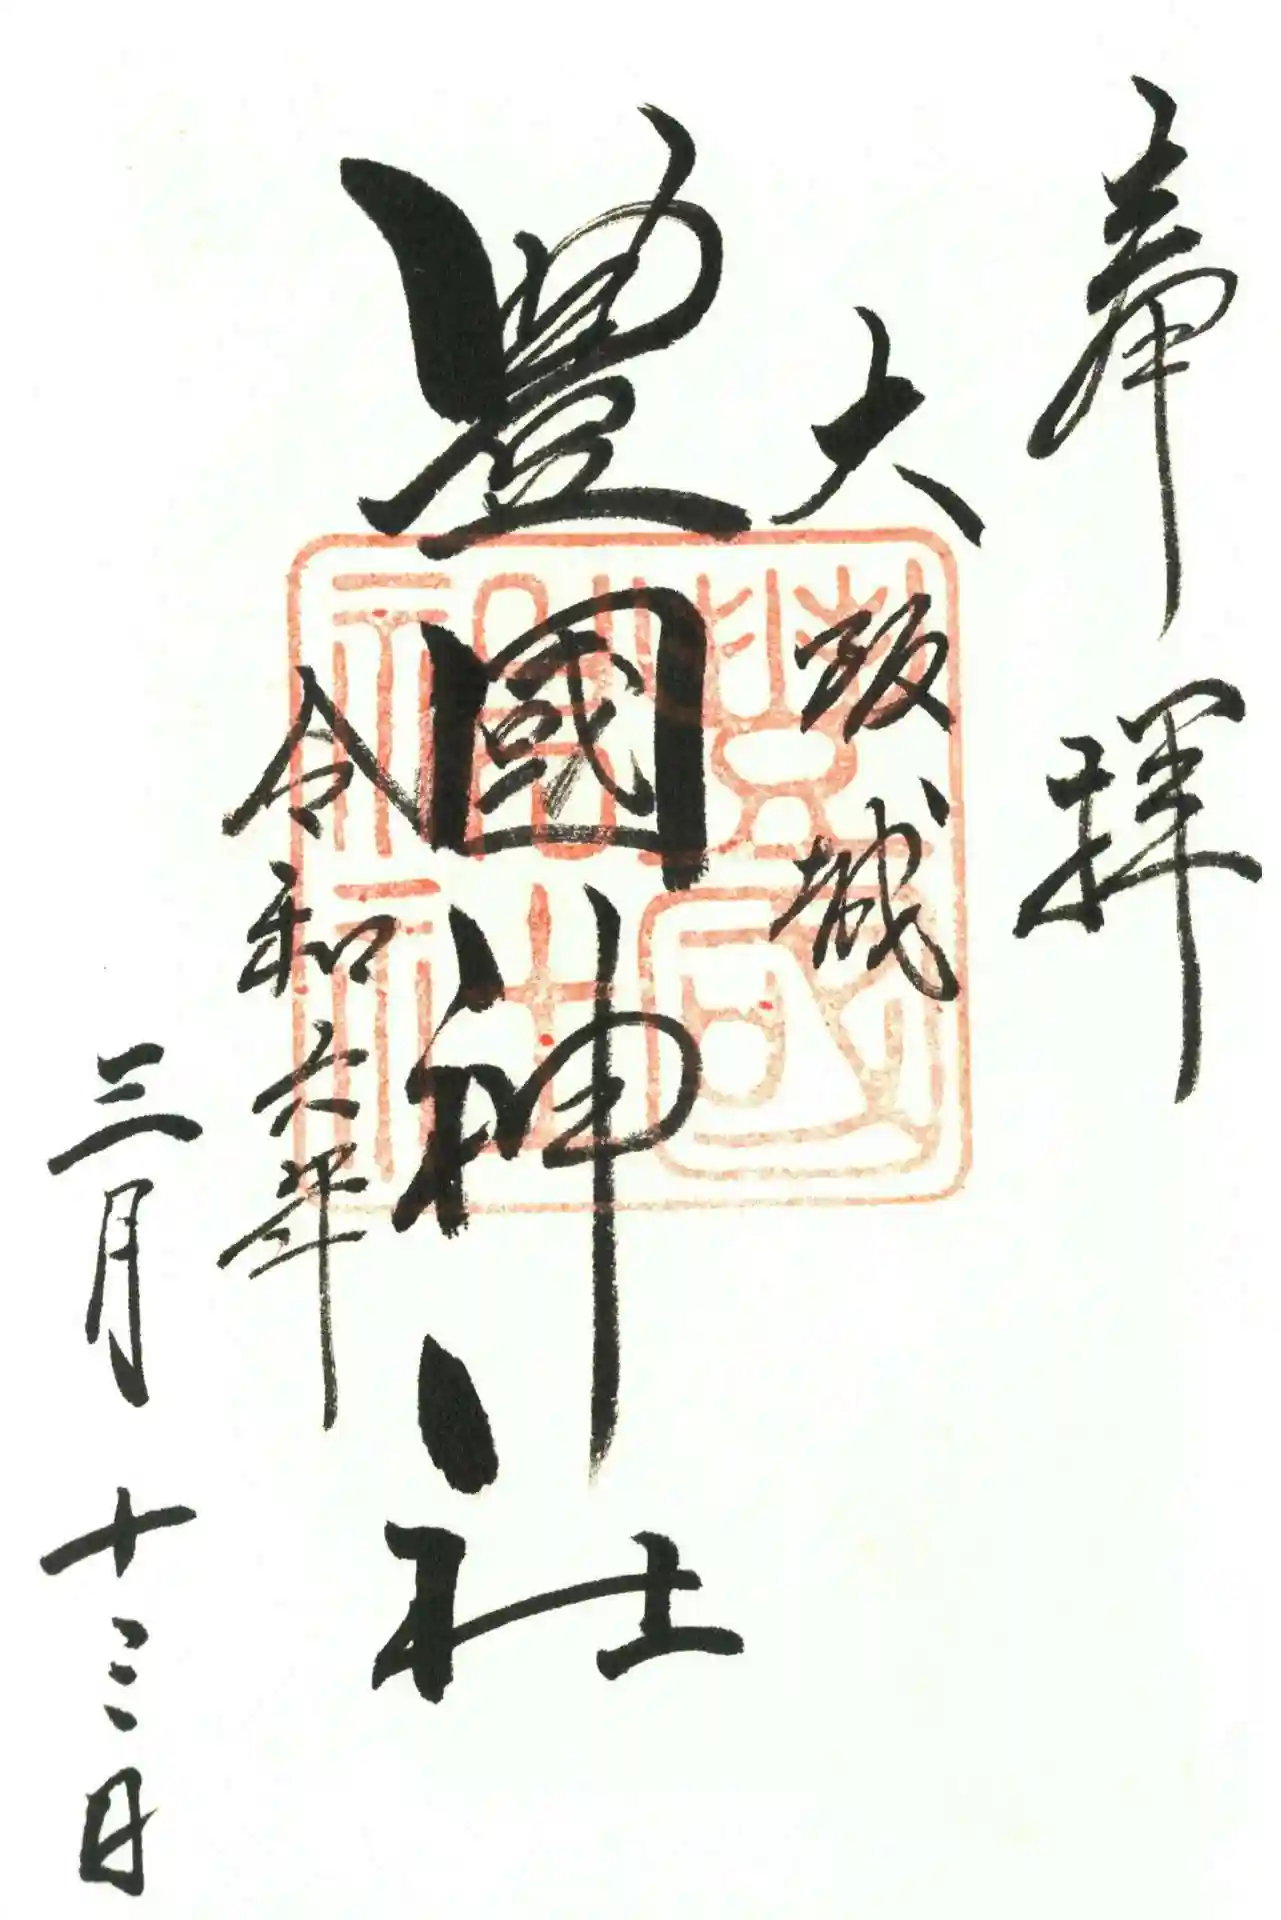 奉拝
大阪城
豊國神社
令和六年
三月十三日
豊國神社